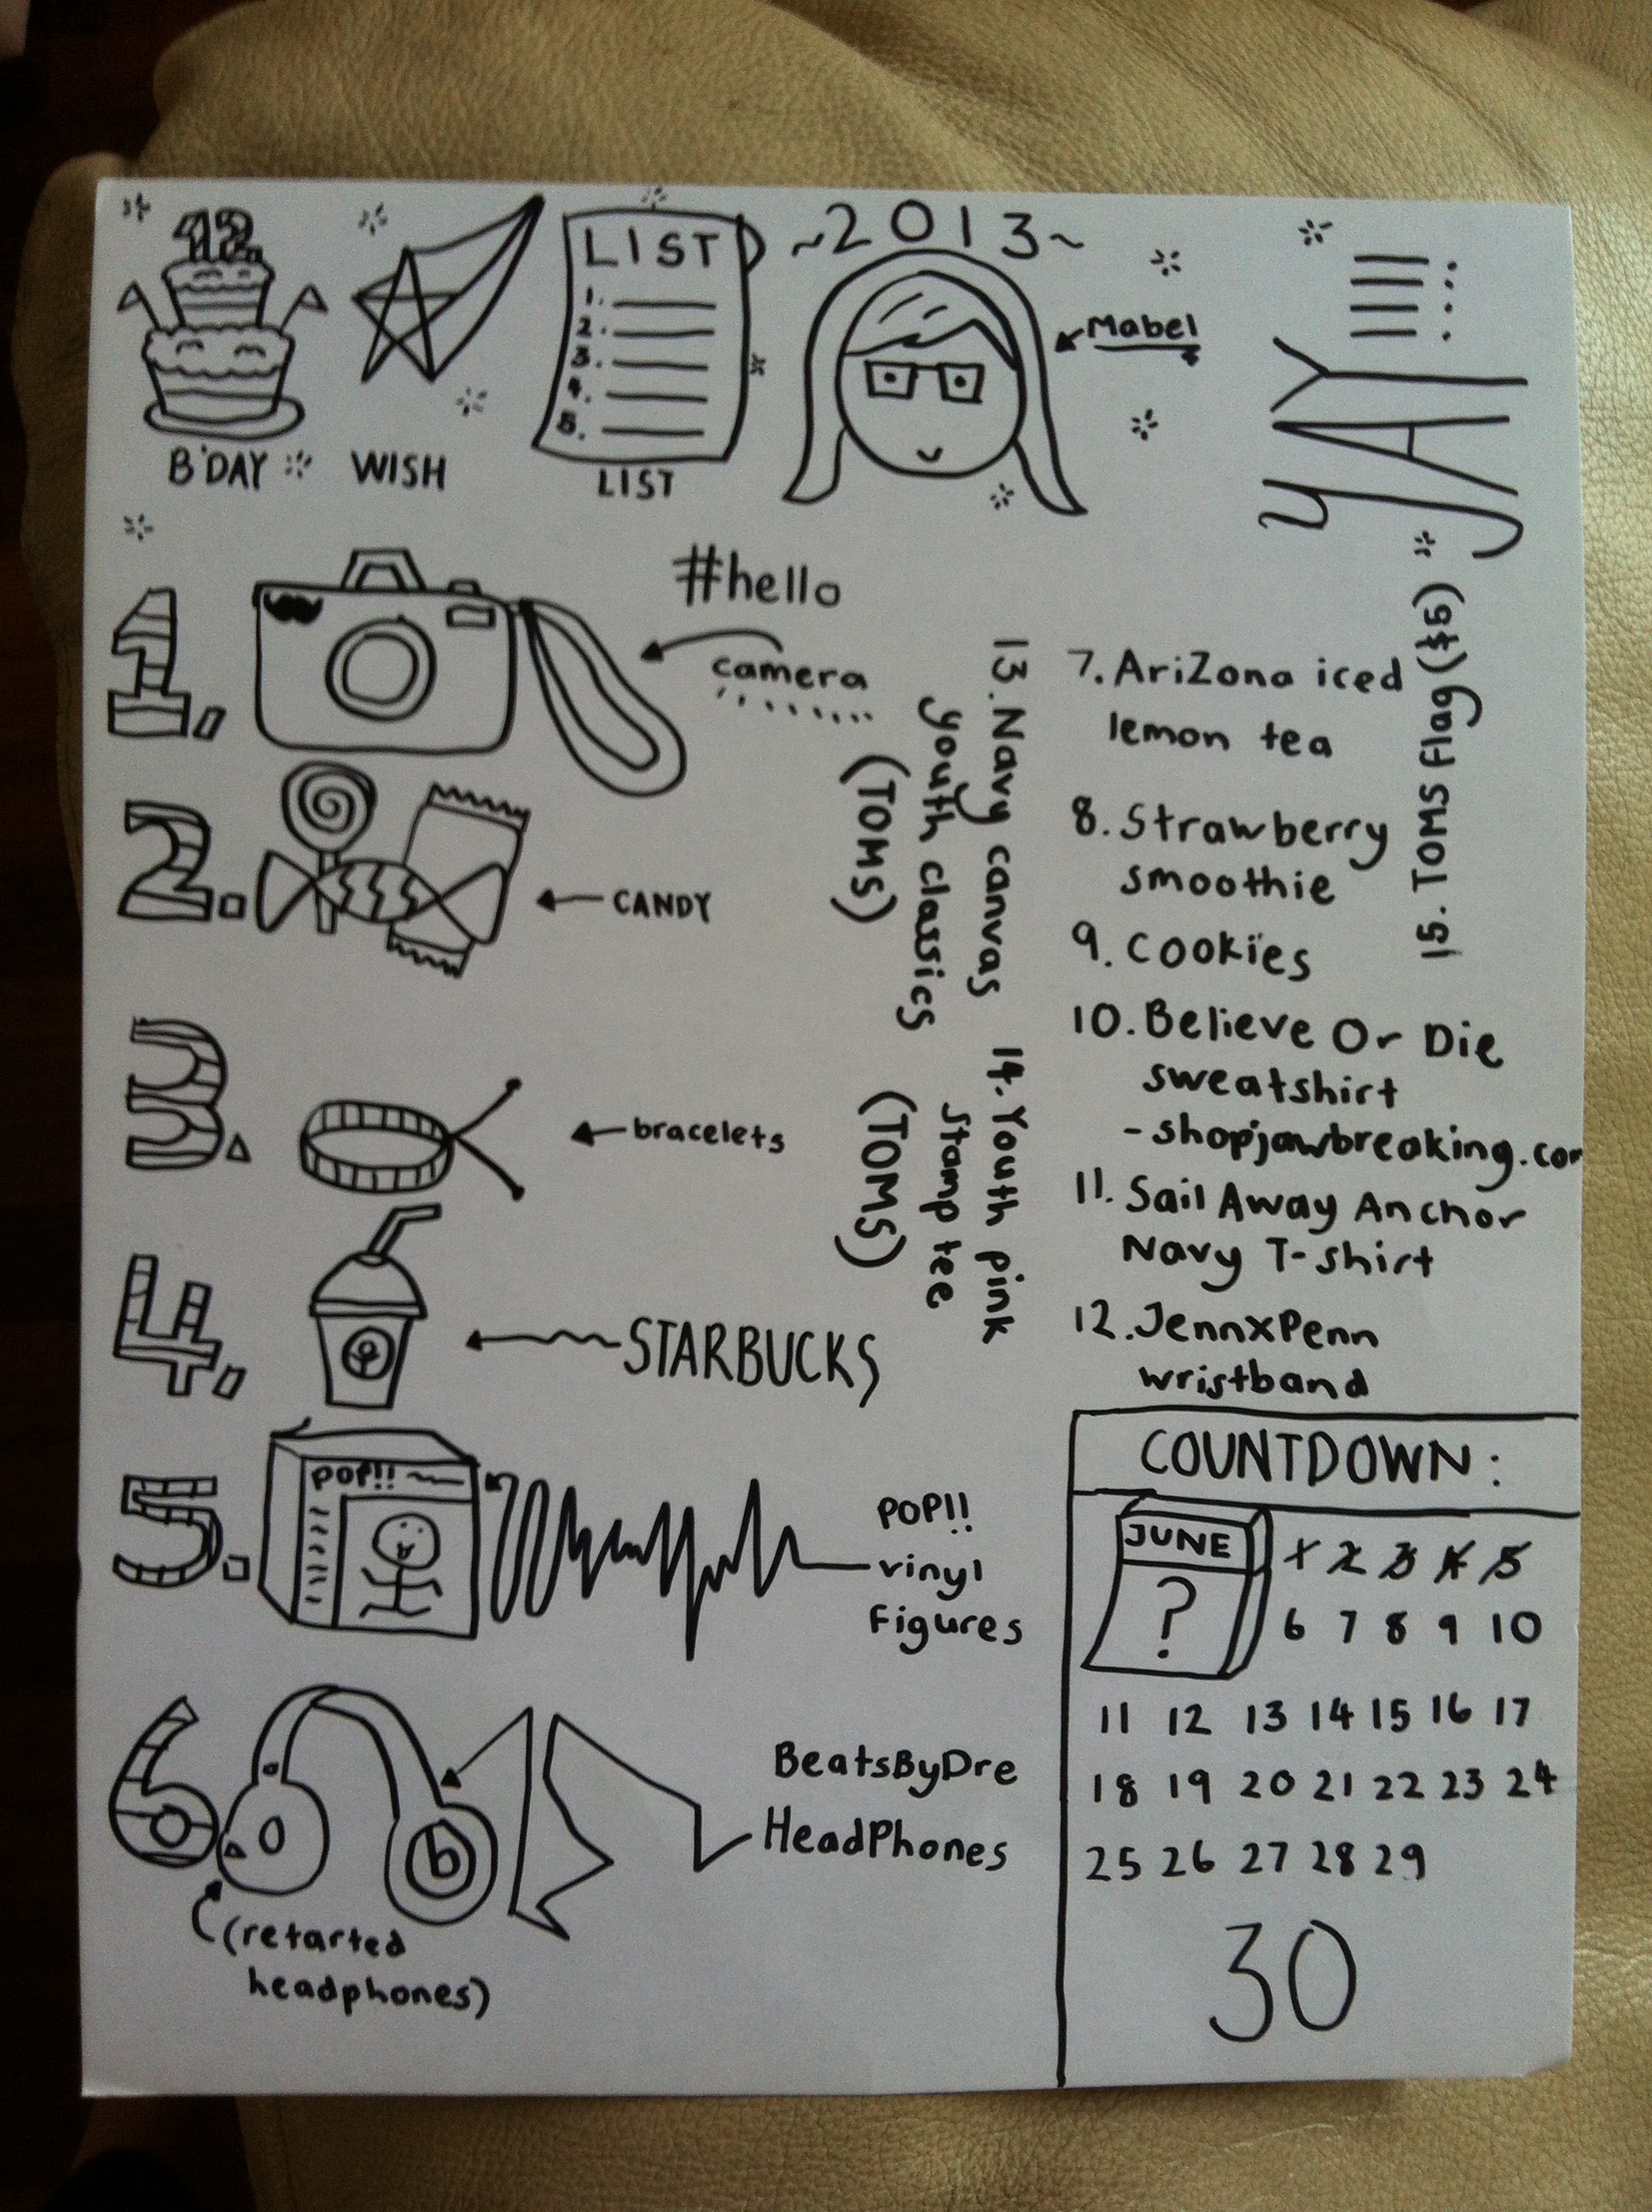 12
B'DAY
WISH
LIST
1.
2.
3.
4.
5.
LIST
~2013~
Mabel
YAY!!!!
1.
#hello
camera
2.
CANDY
3.
bracelets
4.
STARBUCKS
5.
POP!!
POP!!
vinyl
Figures
6.
b
BeatsByDre
HeadPhones
(retarted
headphones)
13. Navy canvas
youth classics
(TOMS)
14. Youth pink
stamp tee
(TOMS)
7. AriZona iced
lemon tea
8. Strawberry
smoothie
9. Cookies
10. Believe Or Die
sweatshirt
- shopjawbreaking.com
11. Sail Away Anchor
Navy T-shirt
12. JennxPenn
wristband
15. TOMS Flag ($5)
COUNTDOWN:
JUNE
?
1 2 3 4 5
6 7 8 9 10
11 12 13 14 15 16 17
18 19 20 21 22 23 24
25 26 27 28 29
30